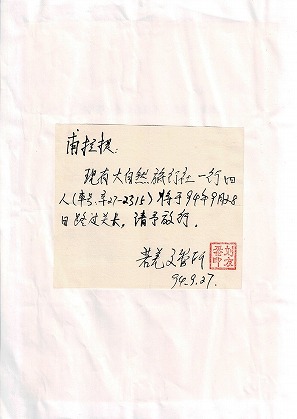 甫拉提:
现有大自然旅行社一行四
人(车号. 27-2315)将于94年9月28
日路过关卡,请予放行。
若羌文管所
94.9.27.